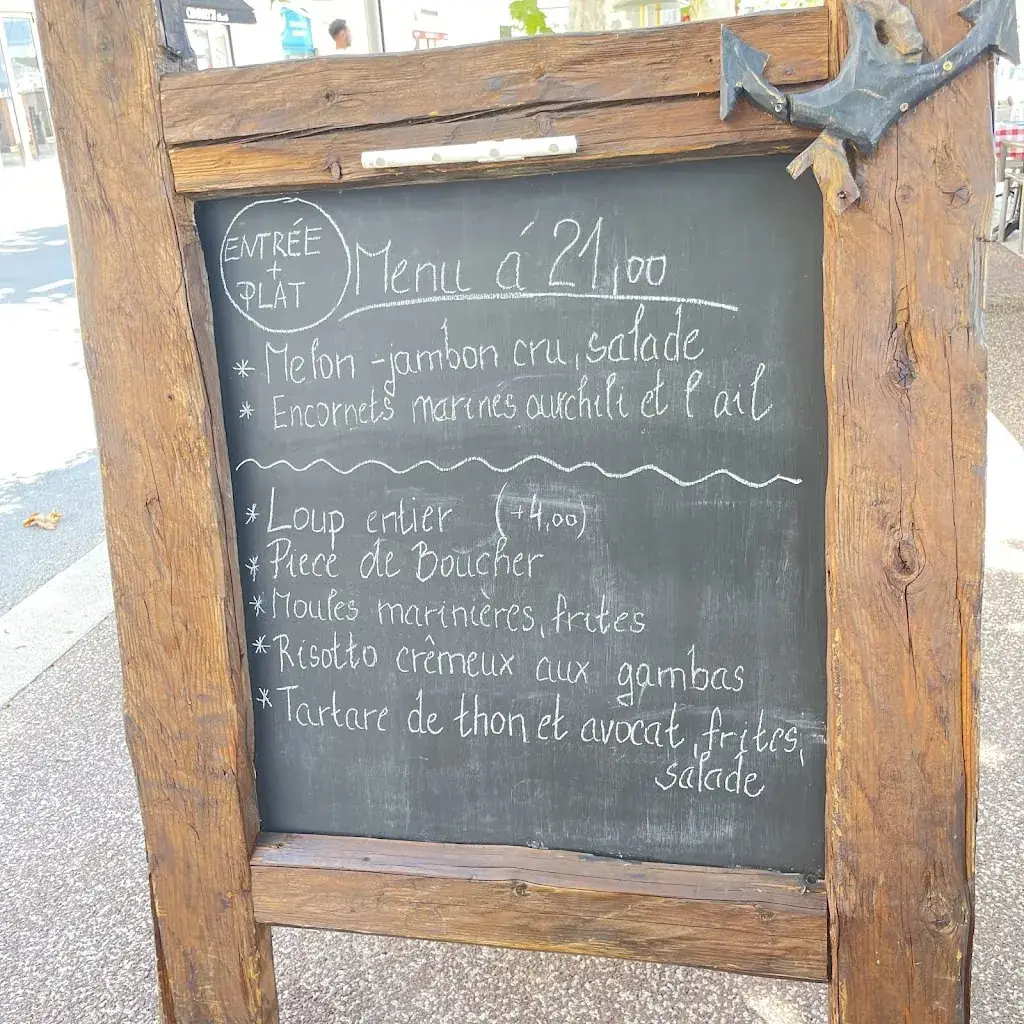 ENTRÉE
+
PLAT
Menu á 21,00
* Melon - jambon cru, salade
* Encornets marines au chili et l ail
* Loup entier (+4,00)
* Piece de Boucher
* Moules marinières, frites
* Risotto crêmeux aux gambas
* Tartare de thon et avocat, frites,
salade